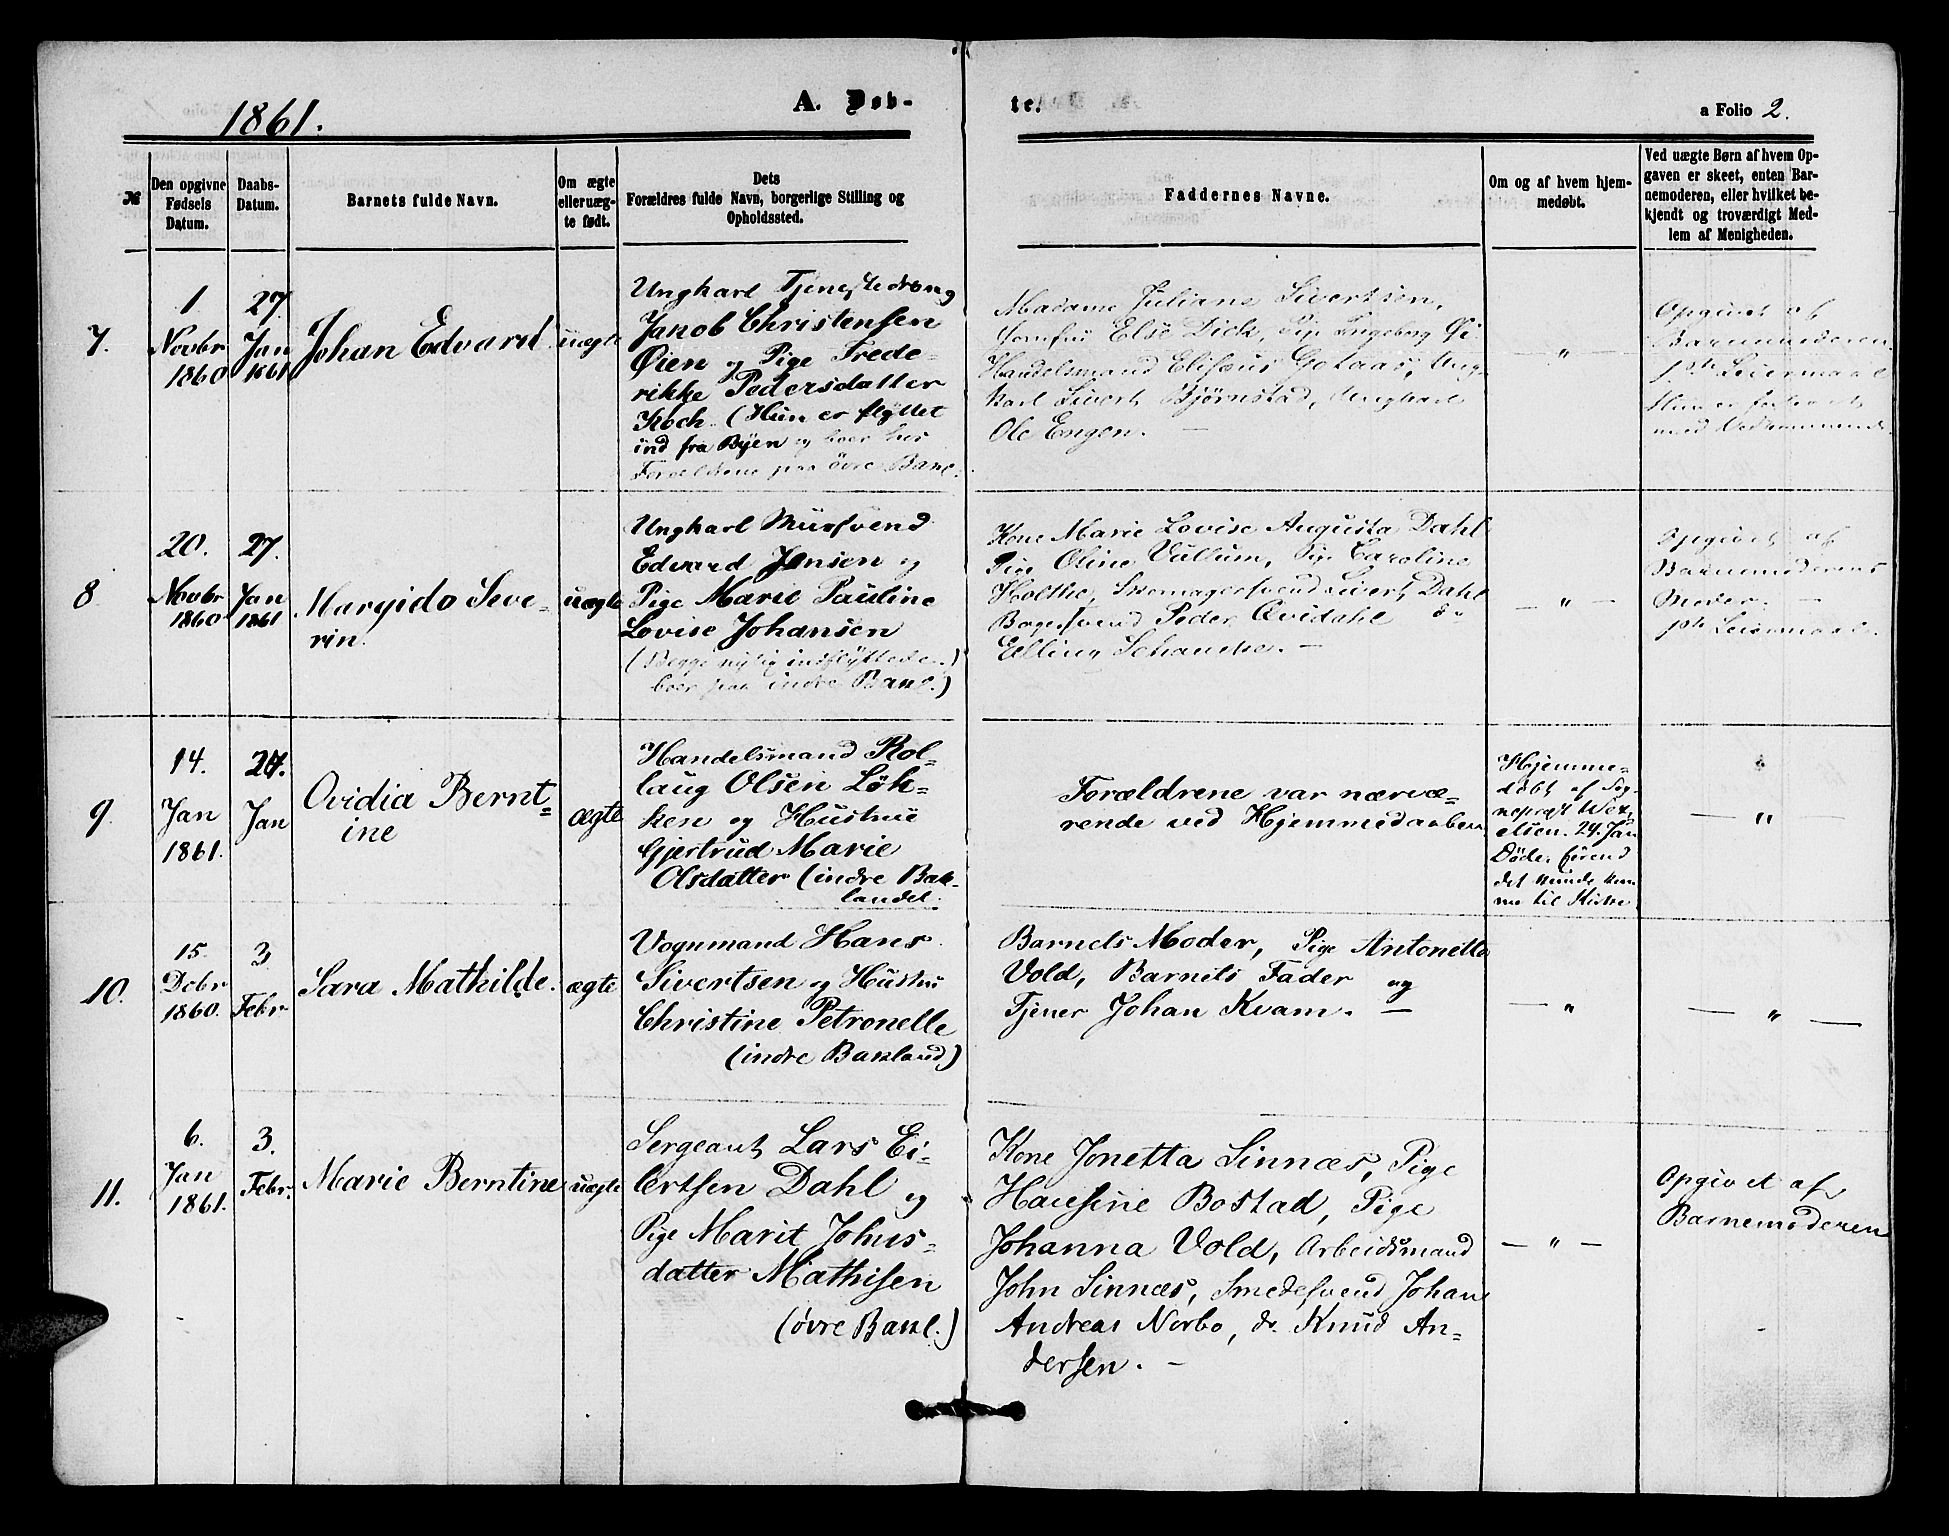 1861.
A. Døb-
te.
a Folio 2.
№
Den opgivne
Fødsels
Datum.
Daabs-
Datum.
Barnets fulde Navn.
Om ægte
eller uæg-
te født.
Dets
Forældres fulde Navn, borgerlige Stilling og
Opholdssted.
Faddernes Navne.
Om og af hvem hjem-
medøbt.
Ved uægte Børn af hvem Op-
gaven er skeet, enten Bar-
nemoderen, eller hvilket be-
kjendt og troværdigt Med-
lem af Menigheden.
7.
1
Novbr
1860
27.
Jan
1861
Johan Edvard
uægte
Ungkarl Tjenestedreng
Jakob Christensen
Øien og Pige Frede-
rikke Pedersdatter
Koch. (Hun er flyttet
ind fra Byen og boer hos
Forældrene paa øvre Bakl.
Madame Juliane Sivertsen,
Jomfru Else Dick, Pige Ingeborg Øi-
Handelsmand Elisæus Gotaas, Ung-
karl Sivert Bjørnstad, Ungkarl
Ole Engen. —
— " —
Opgivet af
Barnemoderen
Leiermaal
Hun er
med Vedkommende.
8
20.
Novbr
1860
27.
Jan
1861
Margido Seve-
rin.
uægte
Ungkarl Mursvend
Edvard Jensen og
Pige Marie Pauline
Lovise Johansen
(Begge nylig indflyttede,
boer paa indre Bakl.)
Kone Marie Lovise Augusta Dahl
Pige Oline Vullum, Pige Caroline
Holthe, Skomagersvend Sivert Dahl
Bagersvend Peder Qvidahl do
Elling Schancke. —
— " —
Opgivet af
Barnemoderens
Moder. —
Leiermaal.
9.
14.
Jan
1861.
27.
Jan
Ovidia Bernt-
ine
ægte
Handelsmand Rol-
laug Olsen Løk-
ken og Hustrue
Gjertrud Marie
Olsdatter (indre Bak-
landet.
Forældrene var nærvæ-
rende ved Hjemmedaaben.
Hjemme-
døbt af Sog-
nepræst Wex-
elsen. 24. Jan
Døde førend
det kunde kom-
me til Kirke
— " —
10.
15.
Debr
1860.
3
Febr.
Sara Mathilde.
ægte
Vognmand Hans
Sivertsen og Hustru
Christine Petronelle
(indre Bakland)
Barnets Moder, Pige Antonette
Vold, Barnets Fader og
Tjener Johan Kvam. —
— "
— " —
11.
6.
Jan
1861.
3.
Febr.
Marie Berntine
uægte
Sergeant Lars Ei-
lertsen Dahl og
Pige Marit Johns-
datter Mathisen
(øvre Bakl.)
Kone Jonetta Sinnæs, Pige
Hansine Bostad, Pige
Johanna Vold, Arbeidsmand
John Sinnæs, Smedesvend Johan
Andreas Norbo, do. Knud An-
dersen. —
— " —
Opgivet af
Barnemoderen